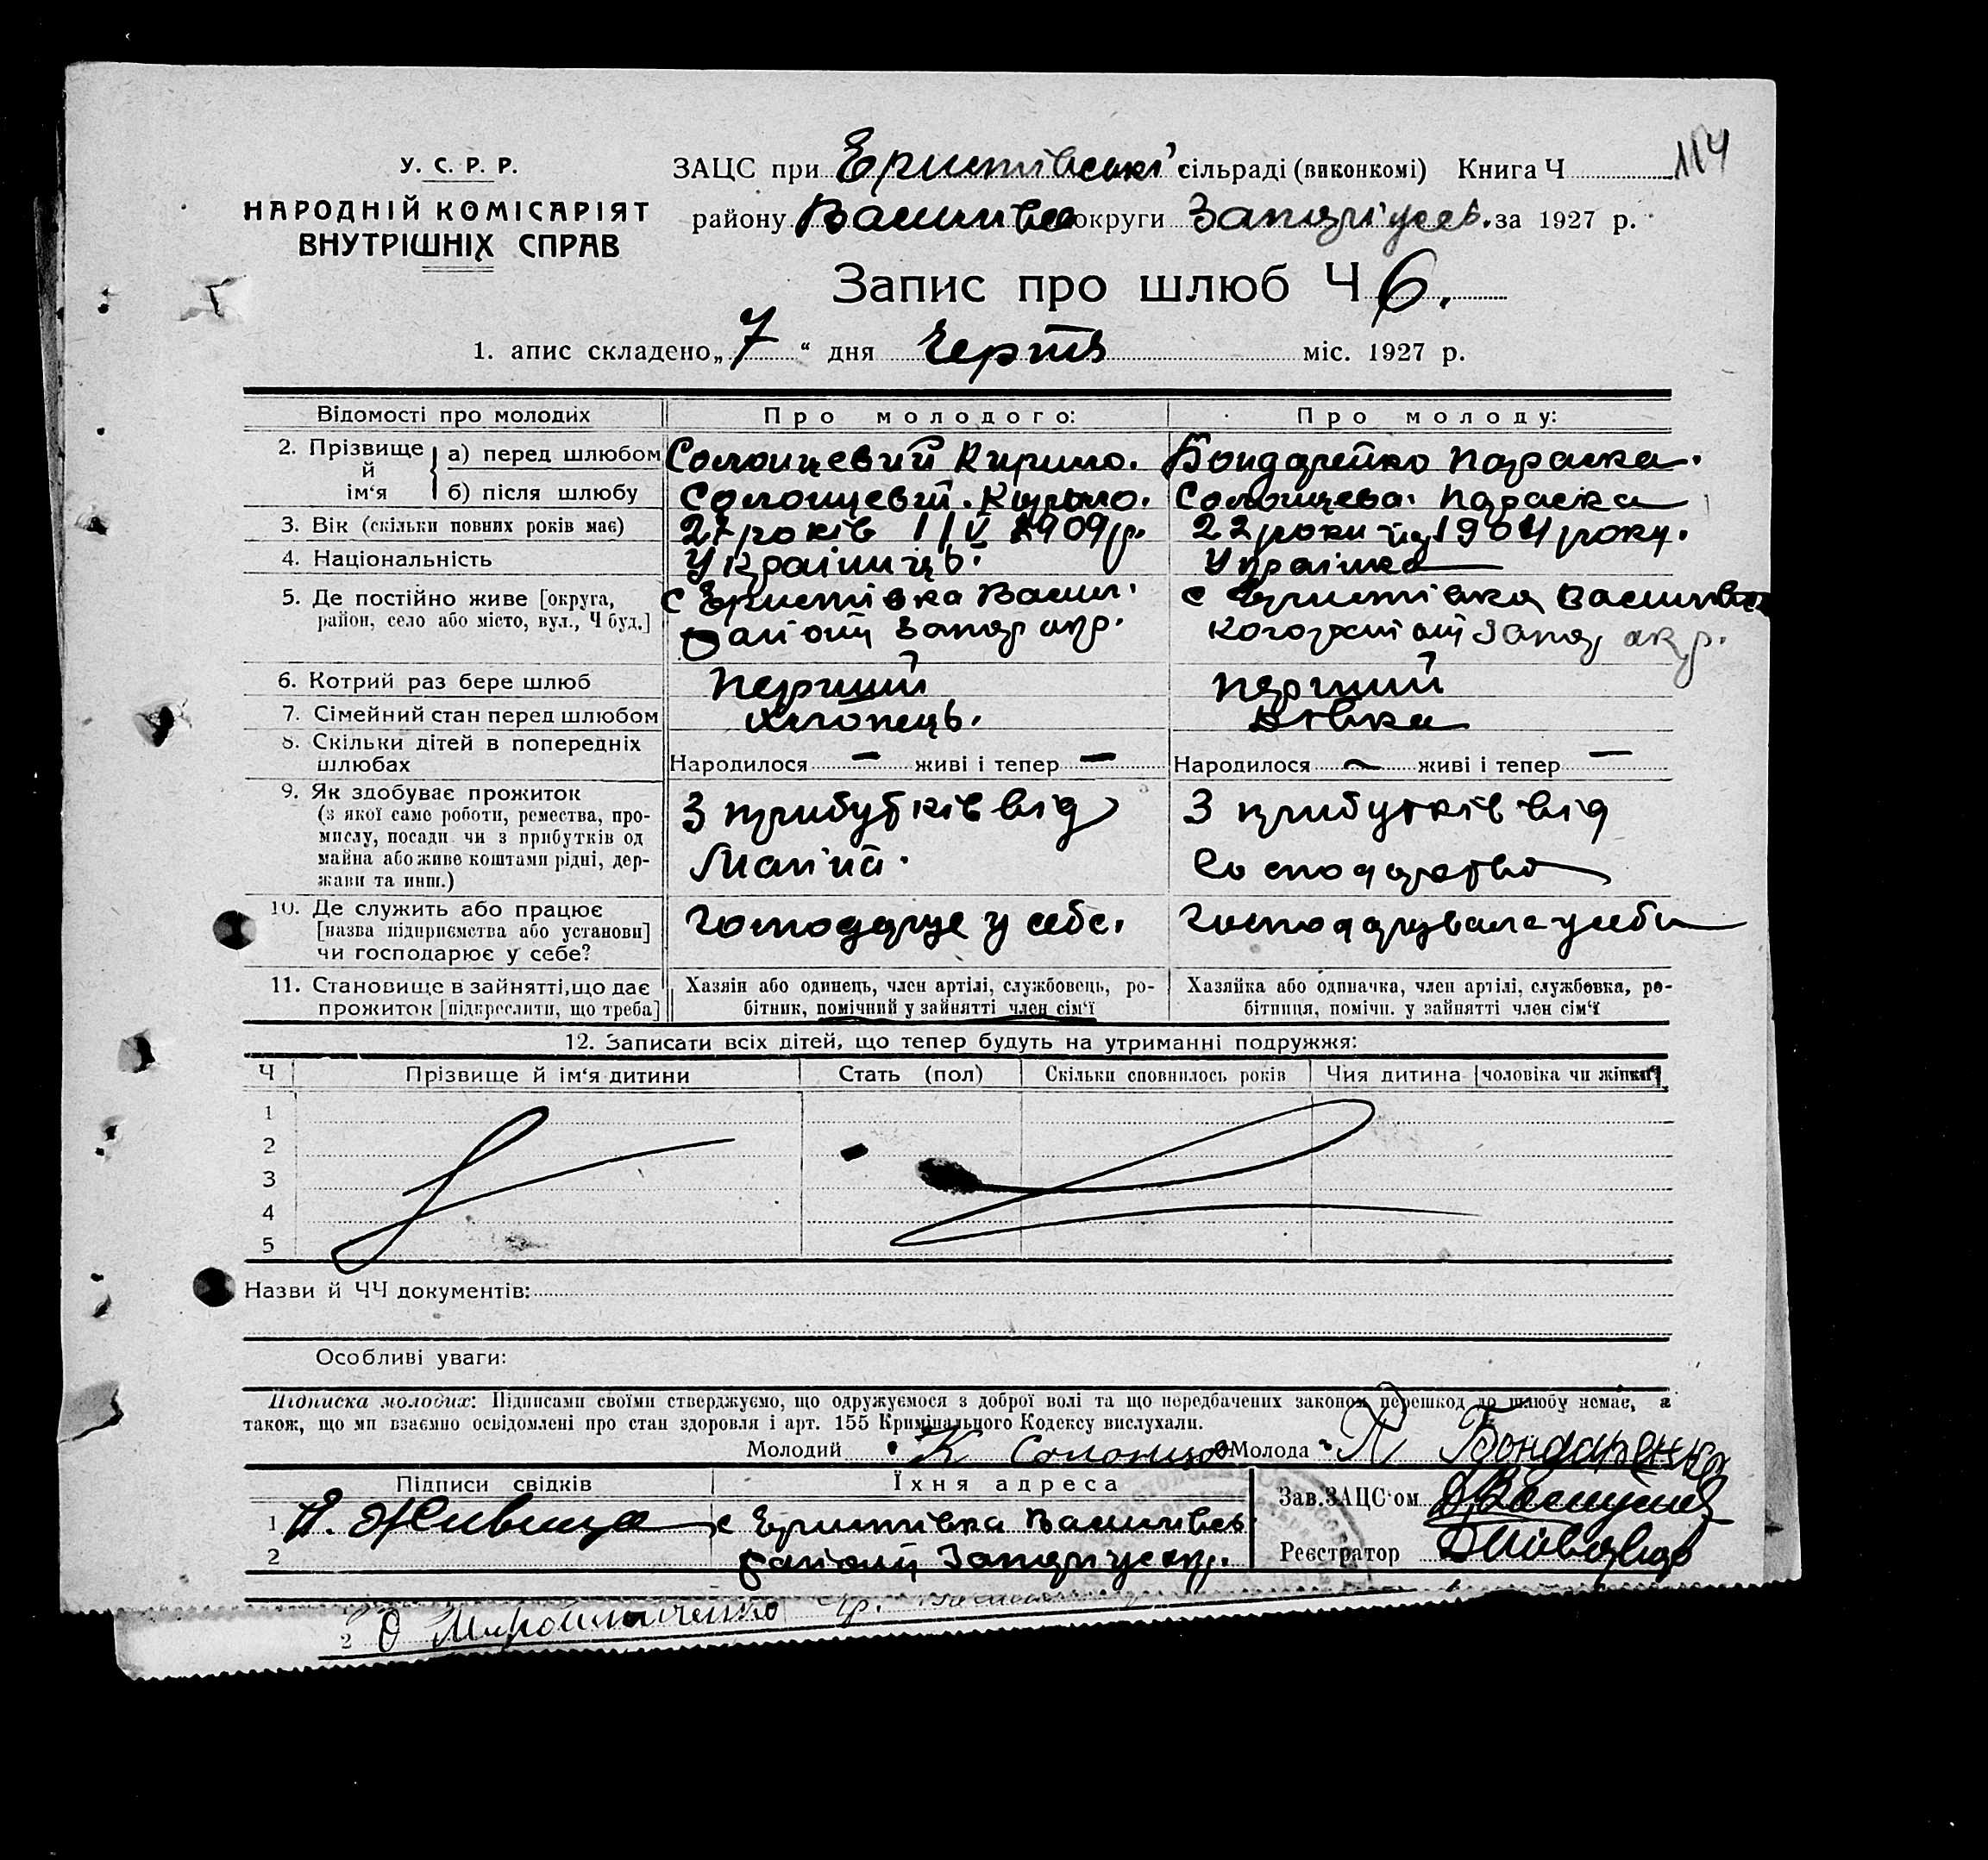 114
У. С. Р. Р.
НАРОДНІЙ КОМІСАРІЯТ
ВНУТРІШНІХ СПРАВ
ЗАЦС при Єристівській сільраді (виконкомі) Книга Ч
району Василівсь округи Запоріжськ. за 1927 р.
Запис про шлюб Ч 6.
1. апис складено „ 7 “ дня міс. 1927 р.
Відомості про молодих Про молодого: Про молоду:
2. Прізвище й ім‘я
а) перед шлюбом Кирило. Бондаренко Параска.
б) після шлюбу Кирило. Параска
3. Вік (скільки повних років має) 27 років 22 роки 1904 року.
4. Національність Українець. Українка
5. Де постійно живе [округа, с Єристівка Васил. с Єристівка Василівсь
район, село або місто, вул., Ч буд.] району Запор окр. кого району Запор окр.
6. Котрий раз бере шлюб Перший перший
7. Сімейний стан перед шлюбом хлопець. дівка
8. Скільки дітей в попередніх
шлюбах Народилося — живі і тепер — Народилося — живі і тепер —
9. Як здобуває прожиток
(з якої саме роботи, ремества, про- З прибутків від З прибутків від
мислу, посади чи з прибутків од
майна або живе коштами рідні, дер- господарства
жави та инш.)
10. Де служить або працює
[назва підприємства або установи] господарює у себе. господарювала у себе
чи господарює у себе?
11. Становище в зайнятті, що дає Хазяїн або одинець, член артілі, службовець, ро- Хазяйка або одиначка, член артілі, службовка, ро-
прожиток [підкреслити, що треба] бітник, помічний у зайнятті член сім‘ї бітниця, помічн. у зайнятті член сім‘ї
12. Записати всіх дітей, що тепер будуть на утриманні подружжя:
Ч Прізвище й ім‘я дитини Стать (пол) Скільки сповнилось років Чия дитина [чоловіка чи жінки]
1
2
3
4
5
Назви й ЧЧ документів:
Особливі уваги:
Підписка молодих: Підписами своїми стверджуємо, що одружуємося з доброї волі та що передбачених законом перешкод до шлюбу немає, а
також, що ми взаємно освідомлені про стан здоровля і арт. 155 Кримінального Кодексу вислухали.
Молодий К Солонцов Молода П Бондаренко
Підписи свідків Їхня адреса Зав. ЗАЦС‘ом
1 с Єристівка Василівсь
2 району Реєстратор
2 О Мирошниченко